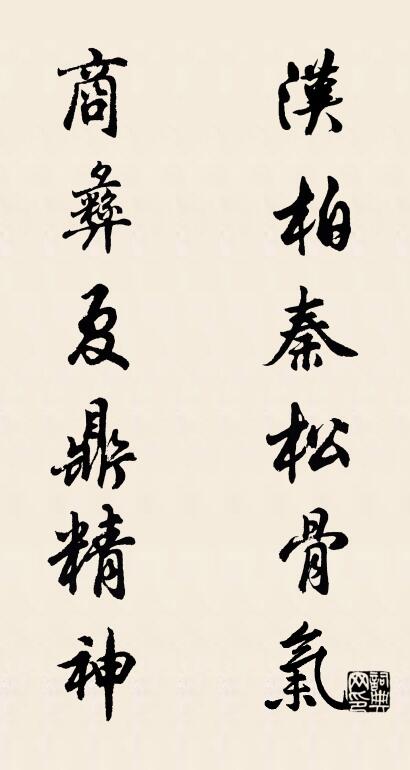 漢柏秦松骨氣
商彝夏鼎精神
詞典网印